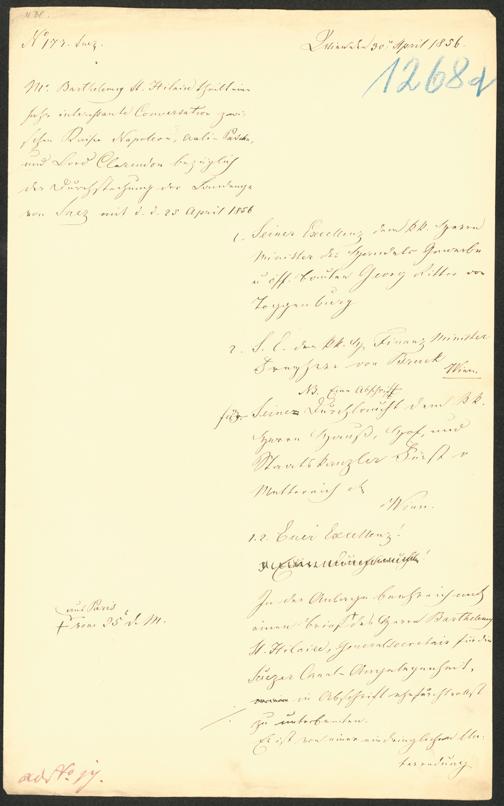 No 177. Suez.
Wien den 30 April 1856.
1268a
Mr. Barthélemy St. Hilaire theilt eine
sehr interessante Conversation zwi-
schen Kaiser Napoleon, Aali-Pascha,
und Lord Clarendon bezüglich
der Durchstechung der Landenge
von Suez mit d. d. 25 April 1856
1. Seiner Excellenz dem kk. Herrn
Minister des Handels Gewerbe
u. öff. Bauten Georg Ritter von
Toggenburg
2. S. E. dem kk. H. Finanz Minister
Freyherr von Bruck
Wien.
NB. Eine Abschrift
für Seine Durchlaucht dem kk.
Herrn Haus-, Hof- und
Staatskanzler Fürst v
Metternich
Wien.
1.2. Euer Excellenz!
In der Anlage beehre ich mich
einen Brief des Herrn Barthélemy
aus Paris
vom 25 d. M.
St. Hilaire, Generalsecretair für den
Suezer Canal-Angelegenheit,
in Abschrift ehrfurchtsvollst
zu unterbreiten.
Es ist von einer eindringlichen Un-
terredung
ad No